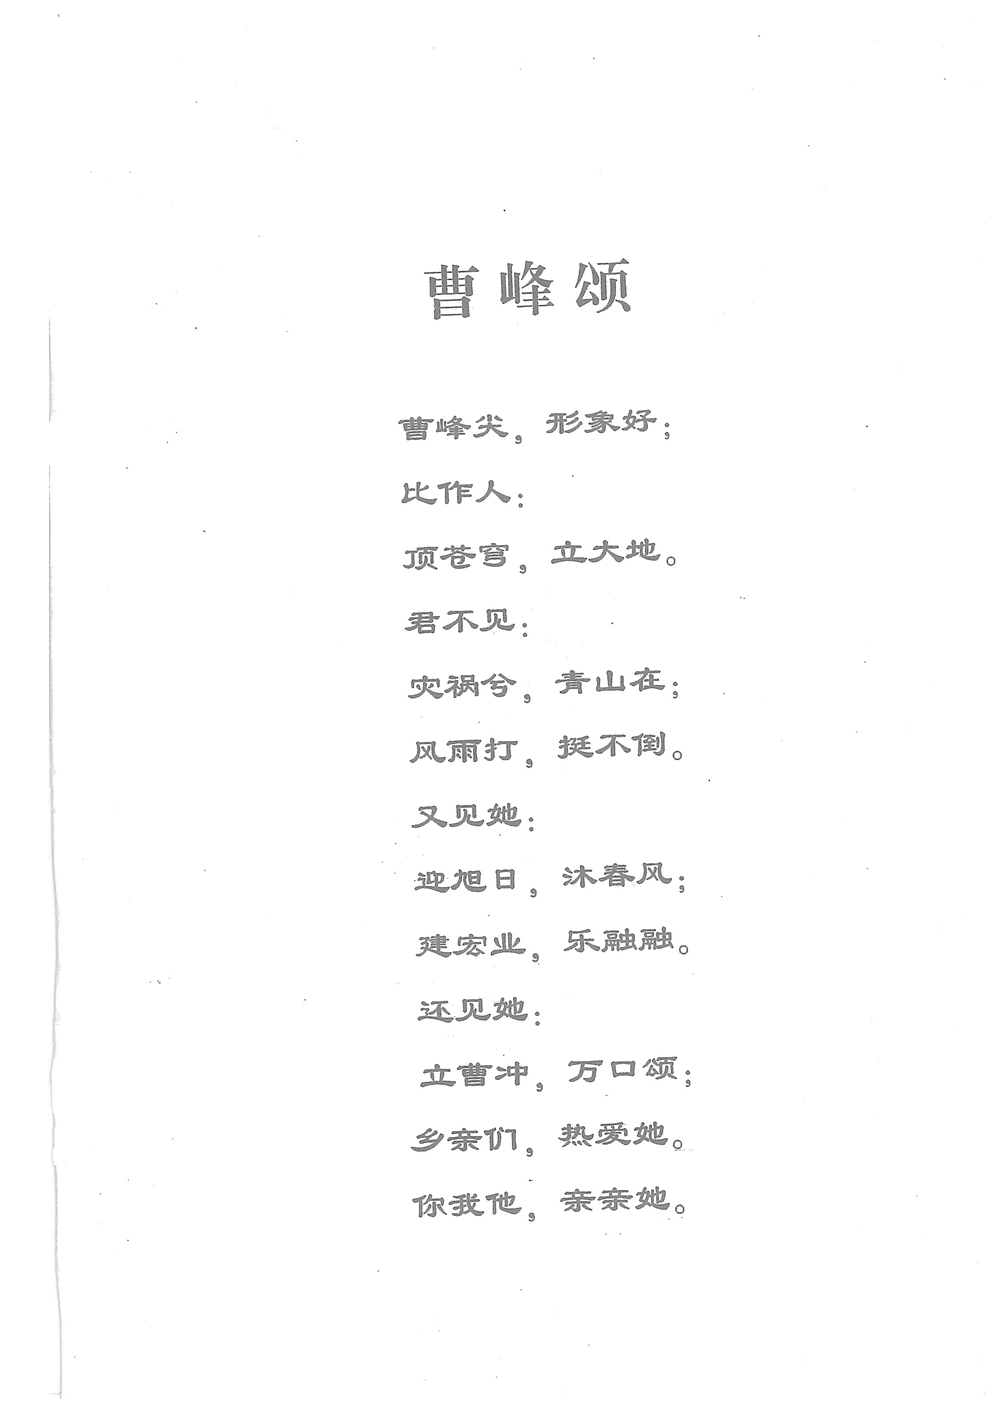 曹峰颂
曹峰尖，形象好；
比作人：
顶苍穹，立大地。
君不见：
灾祸兮，青山在；
风雨打，挺不倒。
又见她：
迎旭日，沐春风；
建宏业，乐融融。
还见她：
立曹冲，万口颂；
乡亲们，热爱她。
你我他，亲亲她。